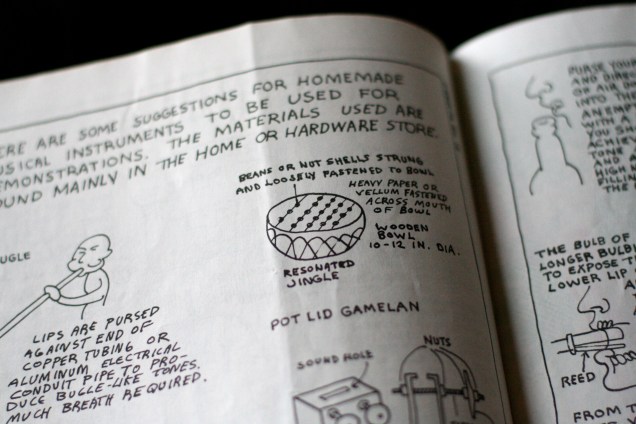 ERE ARE SOME SUGGESTIONS FOR HOMEMADE
USICAL INSTRUMENTS TO BE USED FOR
EMONSTRATIONS. THE MATERIALS USED ARE
OUND MAINLY IN THE HOME OR HARDWARE STORE.
BEANS OR NUT SHELLS STRUNG
AND LOOSELY FASTENED TO BOWL
HEAVY PAPER OR
VELLUM FASTENED
ACROSS MOUTH
OF BOWL
WOODEN
BOWL
10-12 IN. DIA.
RESONATED
JINGLE
UGLE
LIPS ARE PURSED
AGAINST END OF
COPPER TUBING OR
ALUMINUM ELECTRICAL
CONDUIT PIPE TO PRO-
DUCE BUGLE-LIKE TONES.
MUCH BREATH REQUIRED.
POT LID GAMELAN
SOUND HOLE
NUTS
PURSE YOUR
AND DIREC
OF AIR
INTO T
AN EMP
WITH A
YOU SH
ACHIEV
TONE
AND A
HIGH
FILLIN
THE
THE BULB OF
LONGER BULB
TO EXPOSE T
LOWER LIP
REED
FROM T